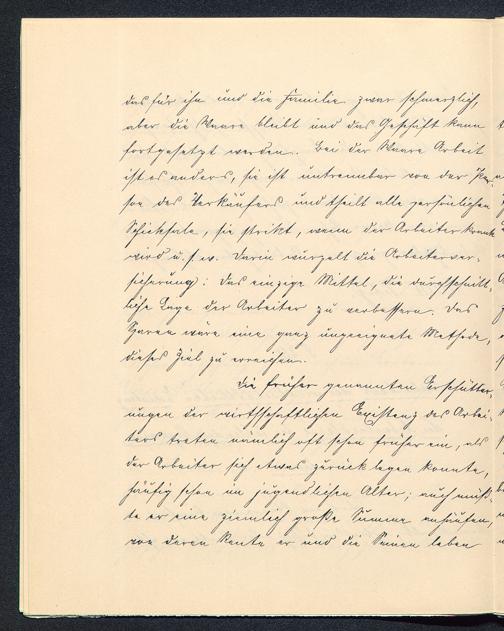 das für ihn und die Familie zwar schmerzlich,
aber die Waare bleibt und das Geschäft kann
fortgesetzt werden. Bei der Waare Arbeit
ist es anders, sie ist untrennbar von der Per-
son des Verkäufers und theilt alle persönlichen
Schicksale, sie strikt, wenn der Arbeiter krank
wird u.s.w. Darin wurzelt die Arbeiterver-
sicherung: das einzige Mittel, die durchschnitt-
liche Lage der Arbeiter zu verbessern. Das
Sparen wäre eine ganz ungeeignete Methode,
dieses Ziel zu erreichen.
Die früher genannten Erschütter-
ungen der wirthschaftlichen Existenz des Arbei-
ters treten nämlich oft schon früher ein, als
der Arbeiter sich etwas zurücklegen konnte,
häufig schon im jugendlichen Alter; auch müß-
te er eine ziemlich große Summe anhäufen,
von deren Rente er und die Seinen leben